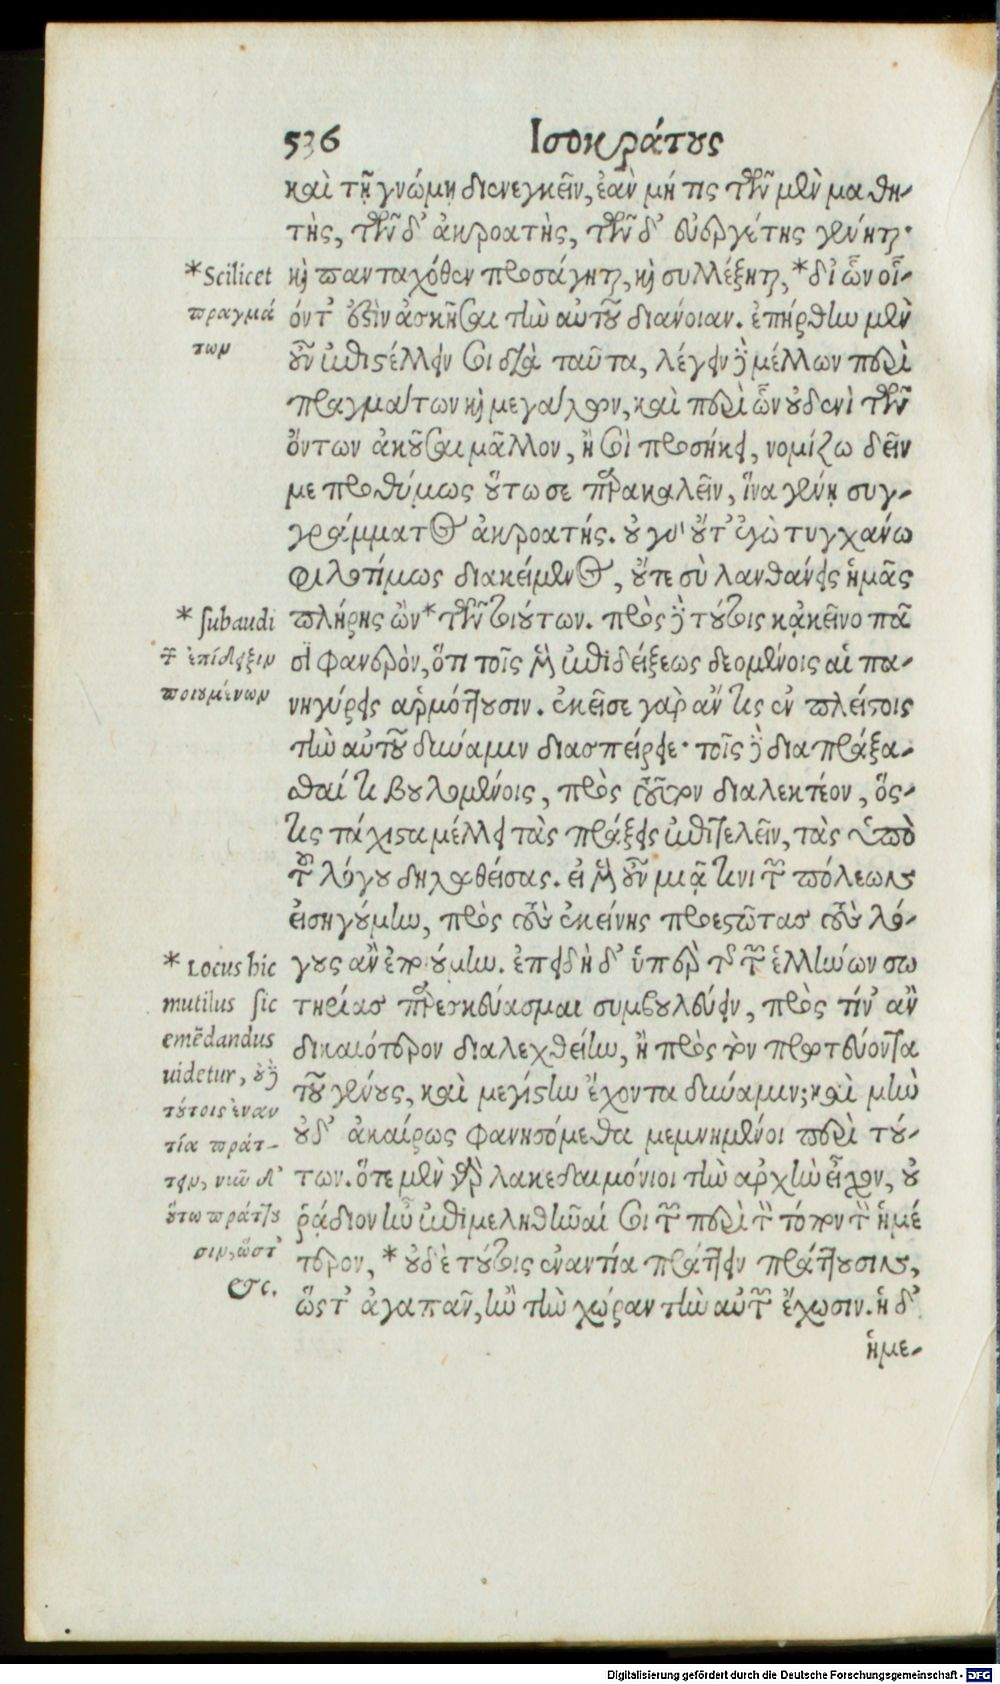 536 Ισοκράτους
καὶ τῇ γνώμῃ διενεγκεῖν, ἐὰν μή τις τῶν μὲν μαθη-
τὴς, τῶν δ' ἀκροατὴς, τῶν δ' εὑεργέτης γένηται·
*Scilicet
πραγμά
των
καὶ πανταχόθεν προσάγηται, καὶ συλλέξηται, *δι' ὧν οἷ-
όντ' ἐξὶν ἀσκῆσαι τὴν αὑτοῦ διάνοιαν. ἐπήρθην μὲν
οὖν ἐπιστέλλειν σοι διὰ ταῦτα, λέγειν δὲ μέλλων περὶ
πραγμάτων καὶ μεγάλων, καὶ περὶ ὧν οὐδενὶ τῶν
ὄντων ἀκοῦσαι μᾶλλον, ἢ σοὶ προσήκει, νομίζω δεῖν
με προθύμως οὕτω σε παρακαλεῖν, ἵνα γένῃ συγ-
γράμματος ἀκροατής. οὐ γὰρ οὔτ' ἐγὼ τυγχάνω
φιλοτίμως διακείμενος, οὔτε σὺ λανθάνεις ἡμᾶς
* subaudi
τῶν ἐπίδειξιν
ποιουμένων
πλήρης ὢν* τῶν τοιούτων. πρὸς δὲ τούτοις κᾀκεῖνο πᾶ
σι φανερὸν, ὅτι τοῖς μὲν ἐπιδείξεως δεομένοις αἱ πα-
νηγύρεις ἁρμόττουσιν. ἐκεῖσε γὰρ ἄν τις ἐν πλείστοις
τὴν αὑτοῦ δύναμιν διασπείρειε· τοῖς δὲ διαπράξα-
σθαί τι βουλομένοις, πρὸς τοῦτον διαλεκτέον, ὅς-
τις τάχιστα μέλλει τὰς πράξεις ἐπιτελεῖν, τὰς ὑπὸ
τοῦ λόγου δηλωθείσας. εἰ μὲν οὖν μιᾷ τινι τῶν πόλεων
εἰσηγούμην, πρὸς τοὺς ἐκείνης προεστῶτας τοὺς λό-
* Locus hic
mutilus sic
emēdandus
uidetur, οὐδὲ
τούτοις ἐναν
τία πράτ-
τειν, νῦν δ'
οὕτω πράττου
σιν, ὥστ'
&c.
γους ἂν ἐποιούμην. ἐπειδὴ δ' ὑπὲρ τῆς τῶν ἑλλήνων σω
τηρίας παρεσκεύασμαι συμβουλεύειν, πρὸς τίν' ἂν
δικαιότερον διαλεχθείην, ἢ πρὸς τὸν πρωτεύοντα
τοῦ γένους, καὶ μεγίστην ἔχοντα δύναμιν; καὶ μὴν
οὐδ' ἀκαίρως φανησόμεθα μεμνημένοι περὶ τού-
των. ὅτε μὲν γὰρ λακεδαιμόνιοι τὴν ἀρχὴν εἶχον, οὐ
ῥᾴδιον ἦν ἐπιμεληθῆναί σοι τῶν περὶ τὸν τόπον τὸν ἡμέ
τερον, * οὐδὲ τούτοις ἐναντία πράττειν πράττουσιν,
ὥστ' ἀγαπᾶν, ἢν τὴν χώραν τὴν αὑτῶν ἔχωσιν. ἡ δ'
ἡμε-
Digitalisierung gefördert durch die Deutsche Forschungsgemeinschaft - DFG